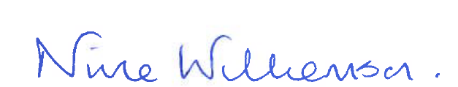 Nine Wilkenson.